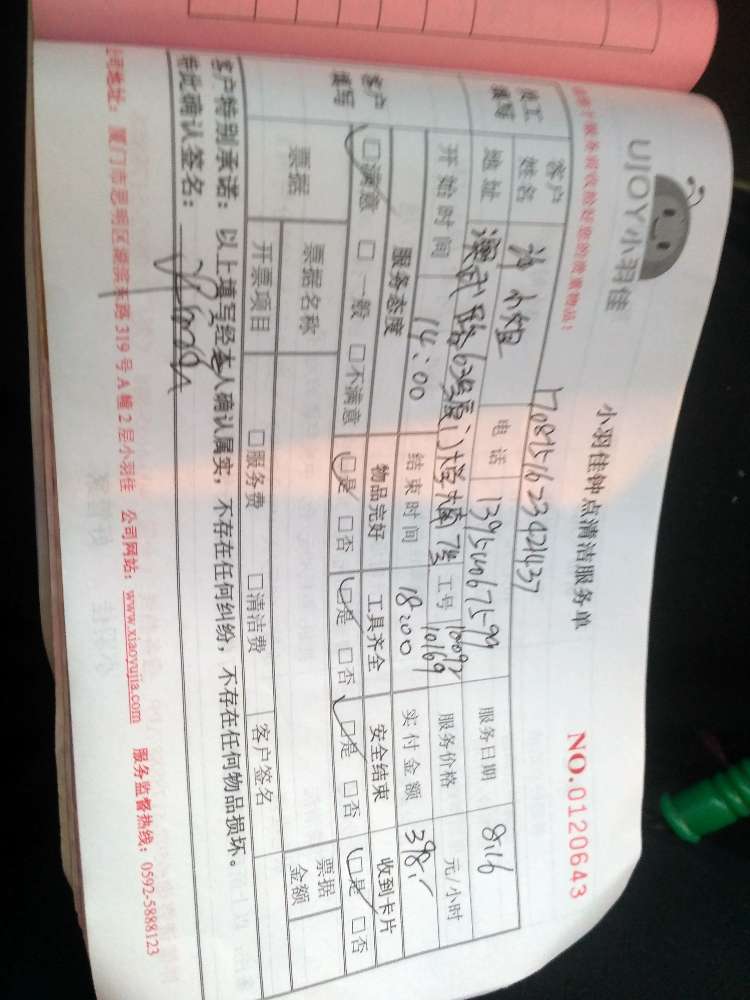 UJOY小羽佳
小羽佳钟点清洁服务单
NO.0120643
170875162342437
员工填写 客户姓名 小姐 电话 服务日期 8.16
地址 演武路 工号 10092 10169 服务价格 元/小时
开始时间 14:00 结束时间 18:00 实付金额 398.
客户填写 服务态度 物品完好 工具齐全 安全结束 收到卡片
□满意 □一般 □不满意 □是 □否 □是 □否 □是 □否 □是 □否
票据 票据名称 客户签名 票据金额
开票项目 □服务费 □清洁费
客户特别承诺:以上填写经本人确认属实,不存在任何纠纷,不存在任何物品损坏。
特此确认签名:
公司地址:厦门市思明区湖滨东路319号A幢2层小羽佳 公司网站:www.xiaoyujia.com 服务监督热线:0592-5888123